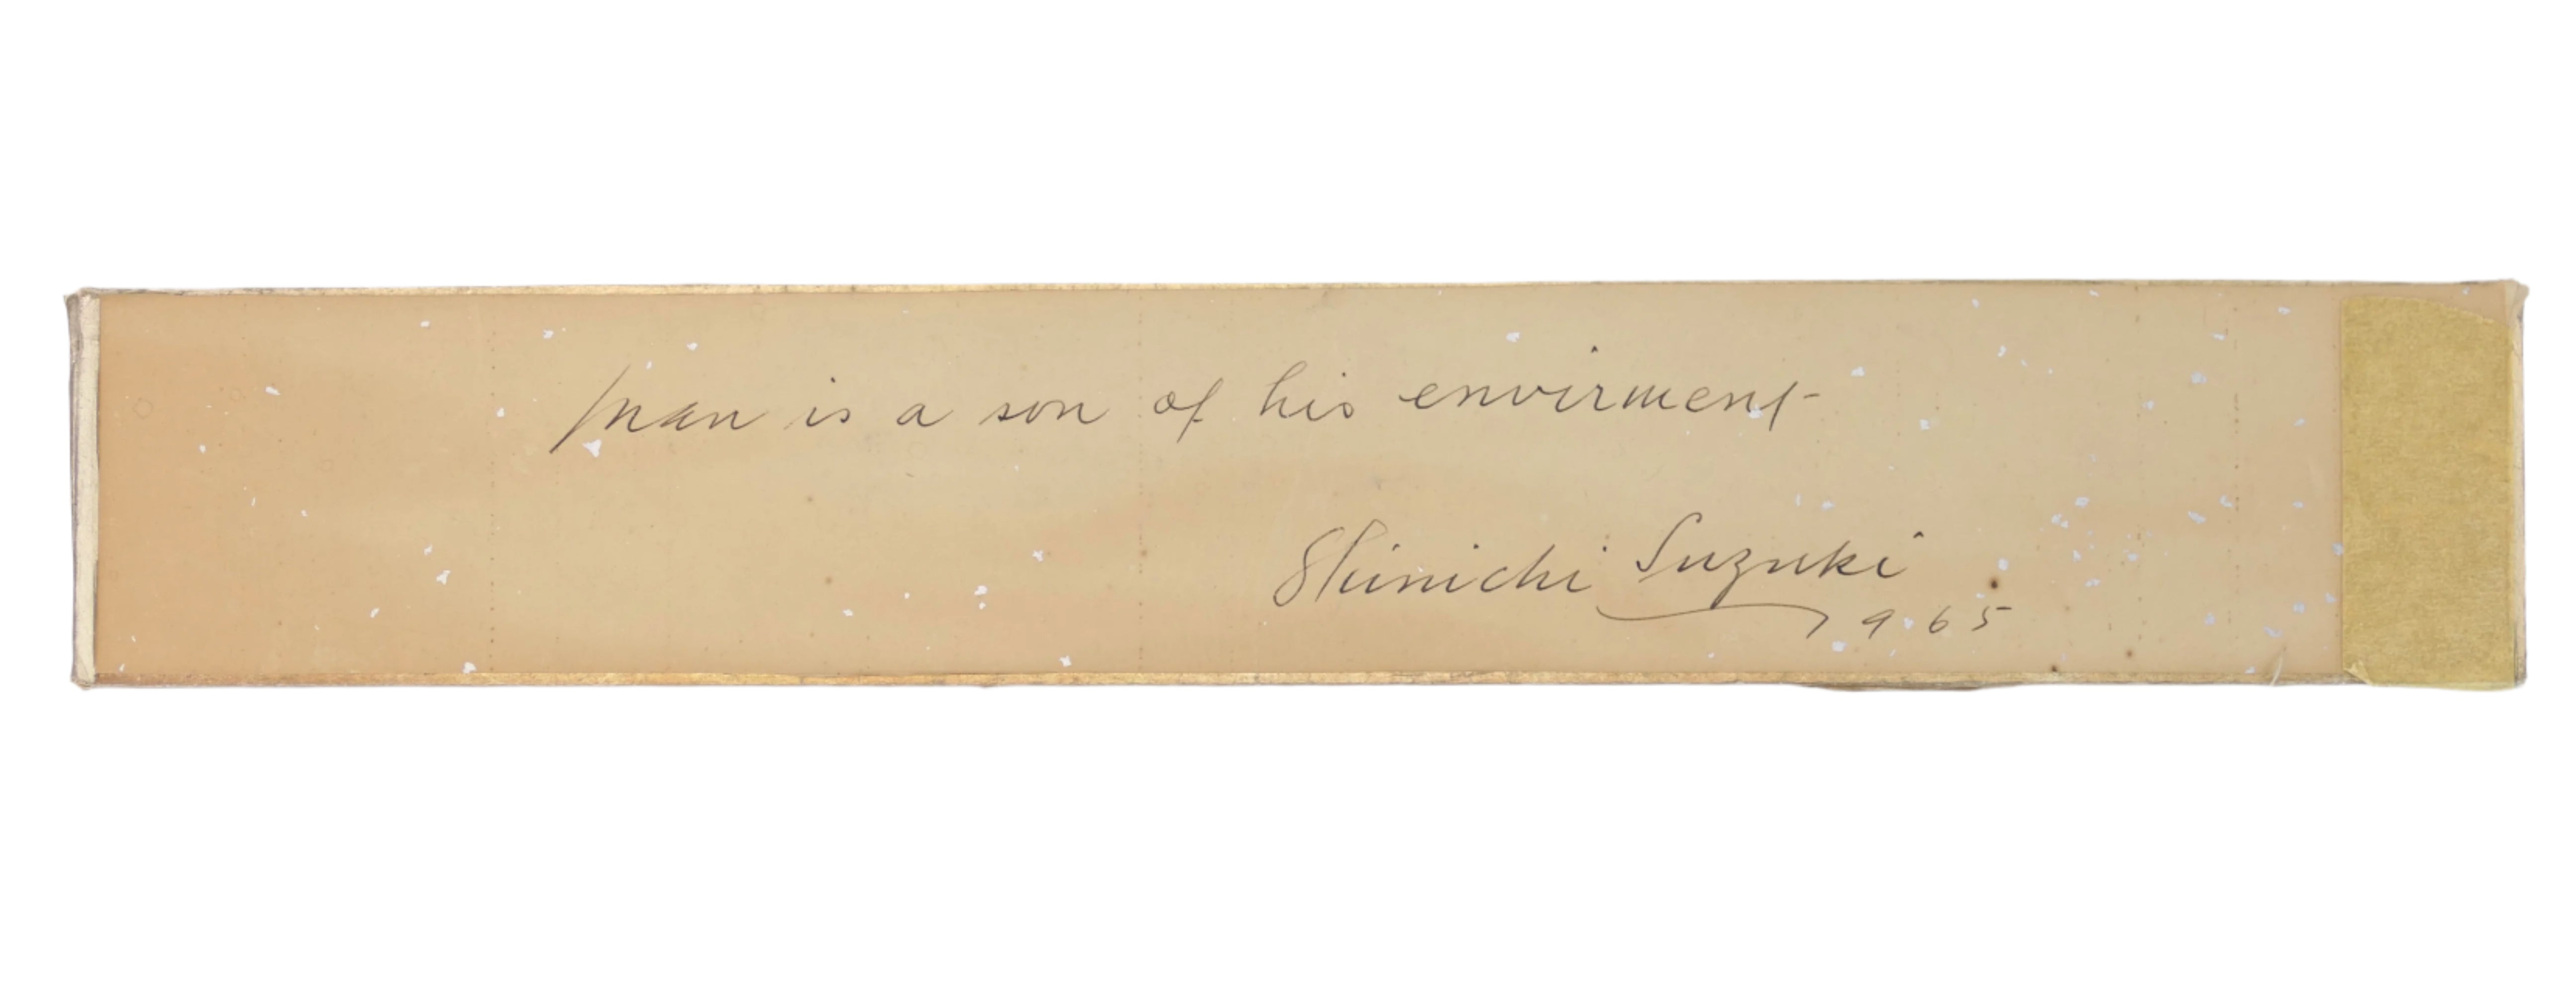 Man is a son of his envirment
Shinichi Suzuki
1965